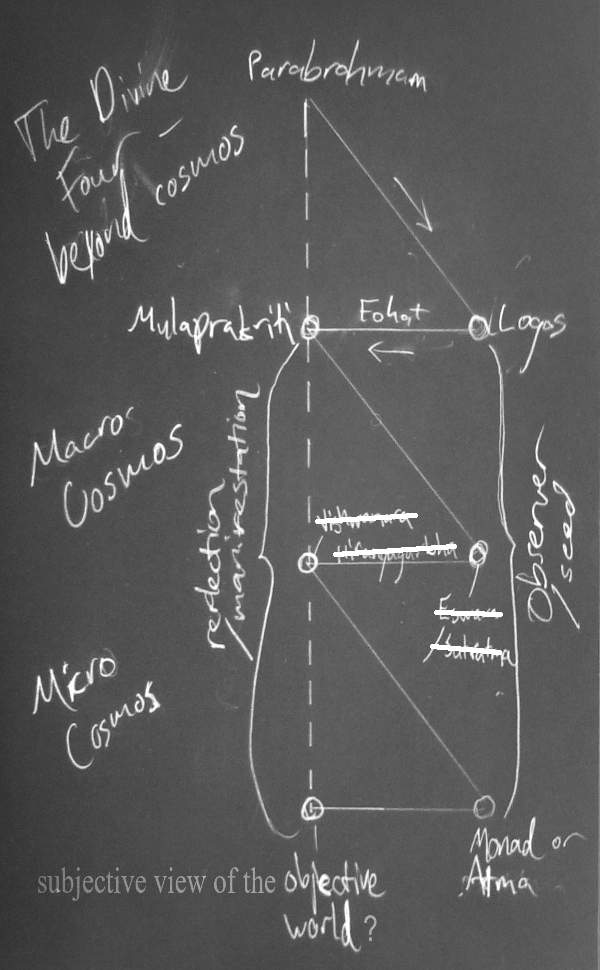 Parabrahmam
The Divine
Four –
beyond cosmos
Mulaprakriti
Fohat
Logos
Macros
Cosmos
reflection
/manifestation
Observer
/seed
Hiranyagarbha
Eswara
/Sutratma
Micro
Cosmos
Monad or
Atma
subjective view of the objective
world?